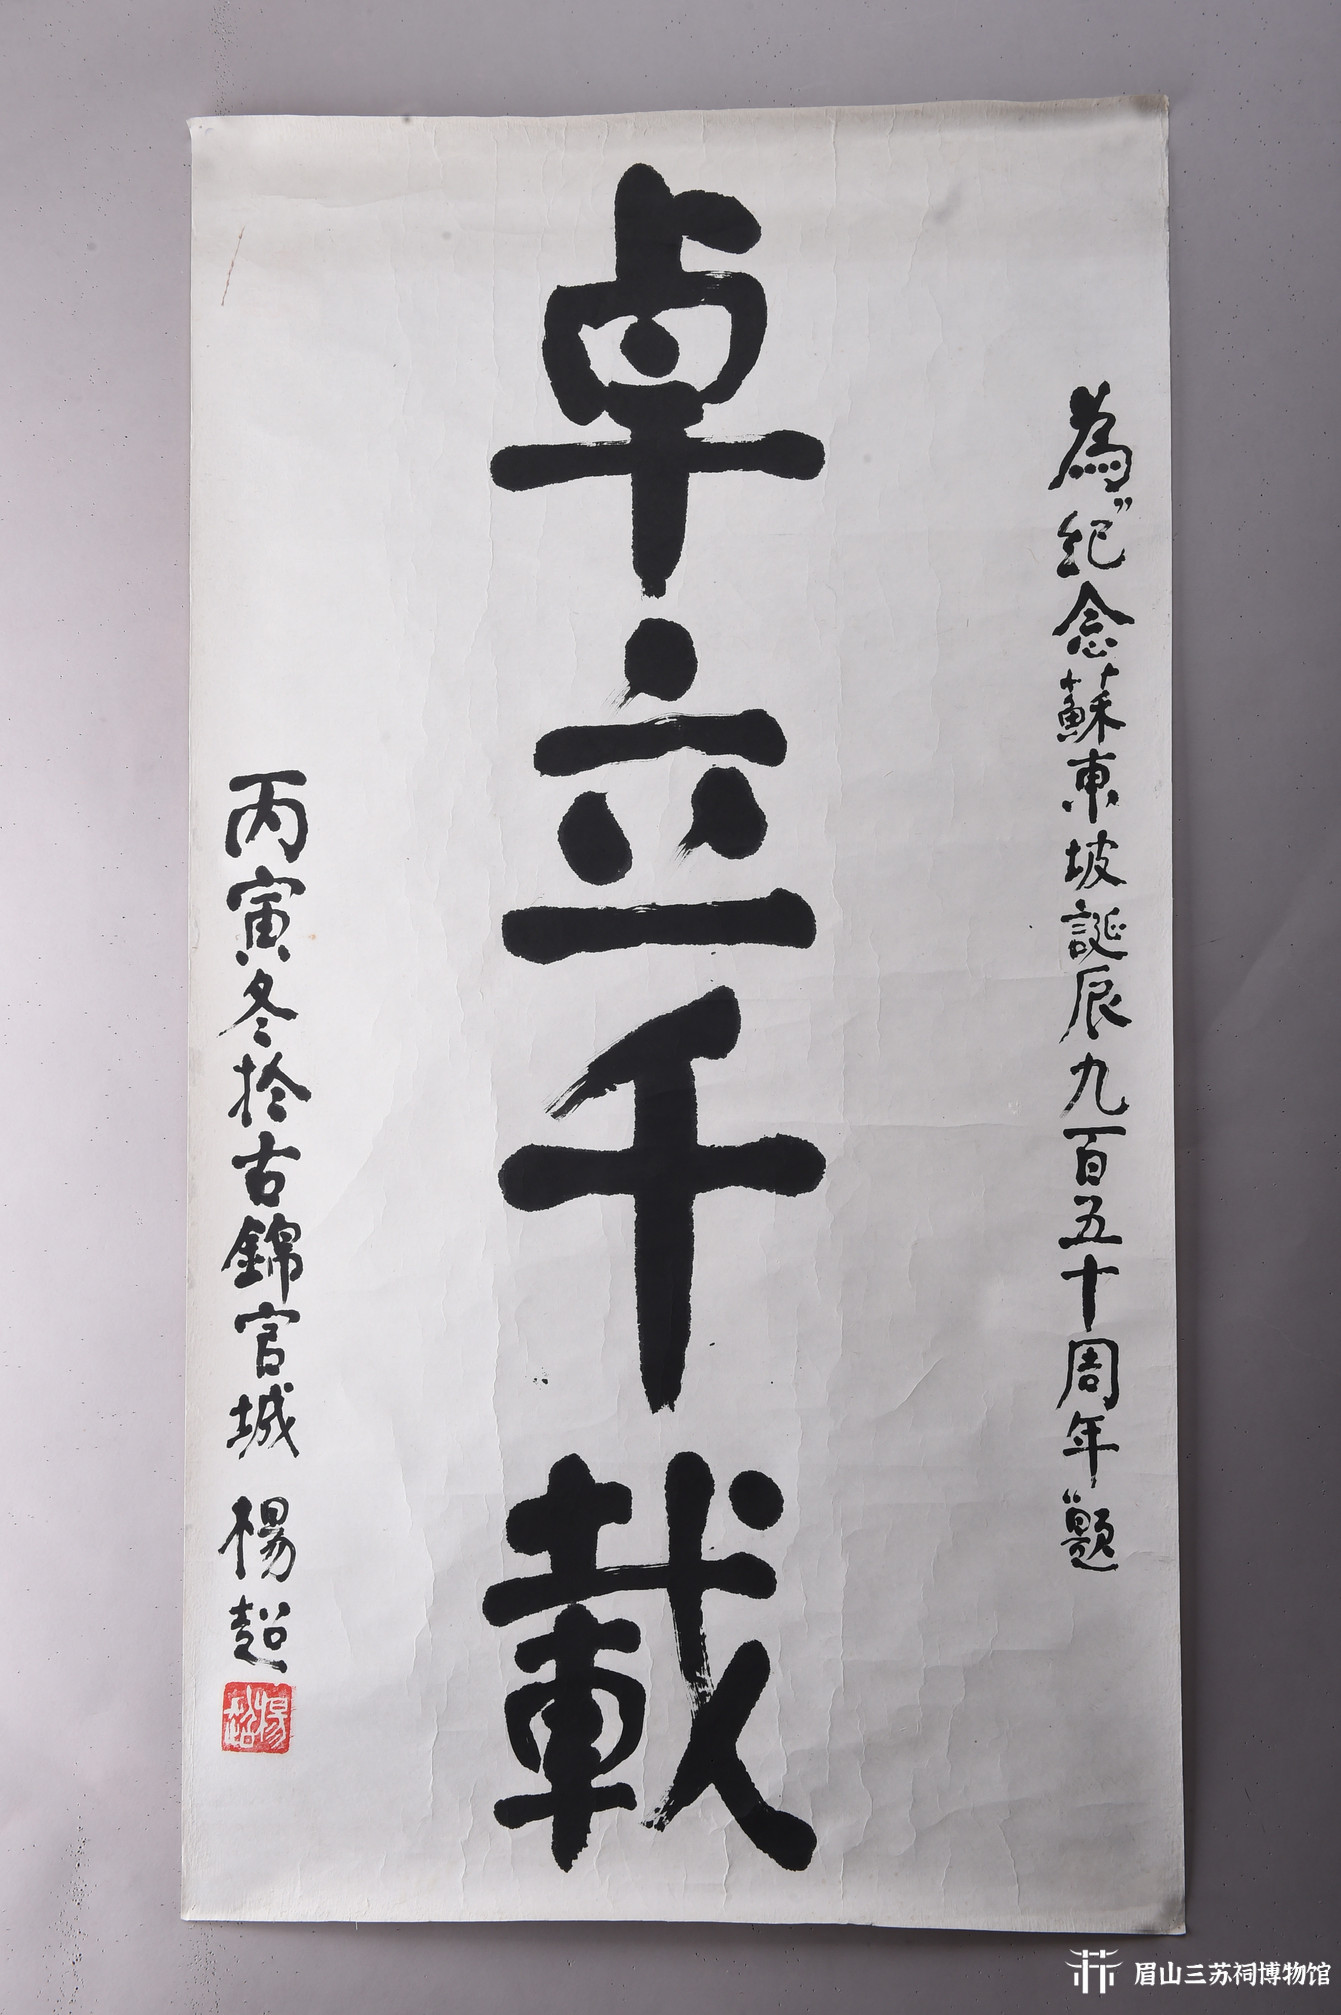 為"紀念蘇東坡誕辰九百五十周年"題
卓立千載
丙寅冬於古錦官城 楊超
楊超
眉山三苏祠博物馆